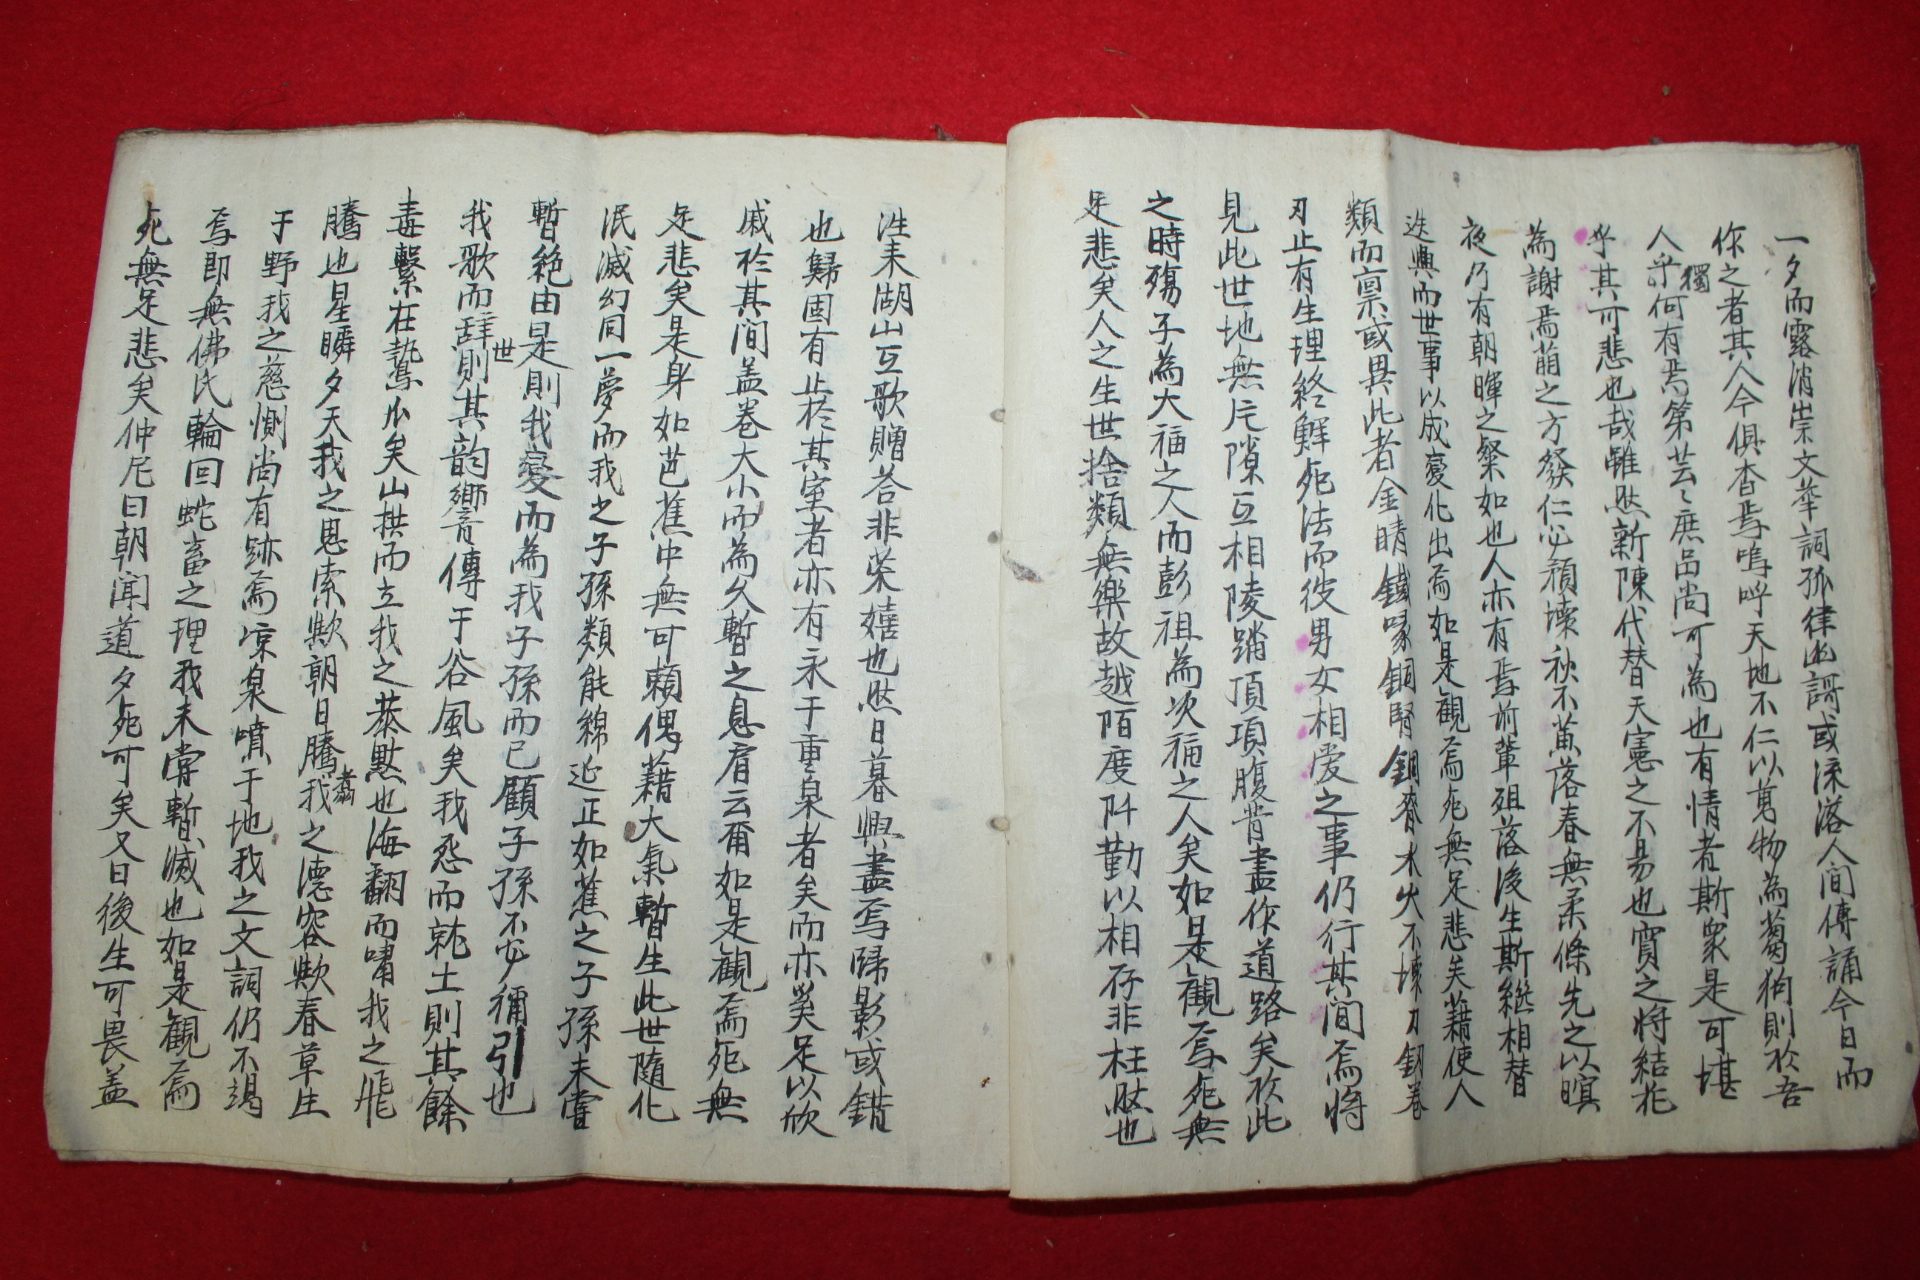 一夕而露消崇文華詞孤律幽謌或流落人間傳誦今日而
你之者其人今俱杳焉嗚呼天地不仁以萬物為蒭狗則於吾
人乎獨何有焉第芸〻庶品尚可為也有情者斯衆是可堪
乎其可悲也哉雖然新陳代替天憲之不易也實之将結花
為謝焉萠之方發仁心頹壞秋不黃落春無柔條先之以暝
夜乃有朝暉之粲如也人亦有焉前輩殂落後生斯継相替
迭興而世事以成變化出焉如是觀焉死無足悲矣藉使人
類而禀或異此者金晴鐵喙銅腎銅脊木火不悚刀釼
刃止有生理終鮮死法而彼男女相爱之事仍行其間焉将
見此世地無片隙互相陵踏頂項腹背盡作道路矣於此
之時殤子為大福之人而彭祖為次福之人矣如是觀焉死無
足悲矣人之生世捨類無樂故越陌度阡勤以相存非枉肰也
泩来湖山互歌贈荅非荣嬉也然日暮興盡焉歸影或錯
也歸固有止於其室者亦有永于重泉者矣而亦奚足以欣
戚於其間盖卷大小而為久暫之息肩云爾如是觀焉死無
足悲矣是身如芭蕉中無可賴偶藉大氣暫生此世隨化
泯滅幻同一夢而我之子孫類能綿延正如蕉之子孫未嘗
暫絶由是世則我變而為我子孫而已顧子孫不必獮引也
我歌而辭則其韵嚮音傳于谷風矣我恐而就土則其餘
毒繫在鷙爪矣山拱而立我之恭黙也海翻而嘯我之飛
騰也星瞬夕天我之思索歟朝日騰翥我之德容歟春草生
于野我之慈惻尚有跡焉凉泉噴于地我之文詞仍不竭
焉即無佛氏輪回蛇畜之理我未嘗暫滅也如是觀焉
死無足悲矣仲尼曰朝聞道夕死可矣又曰後生可畏盖